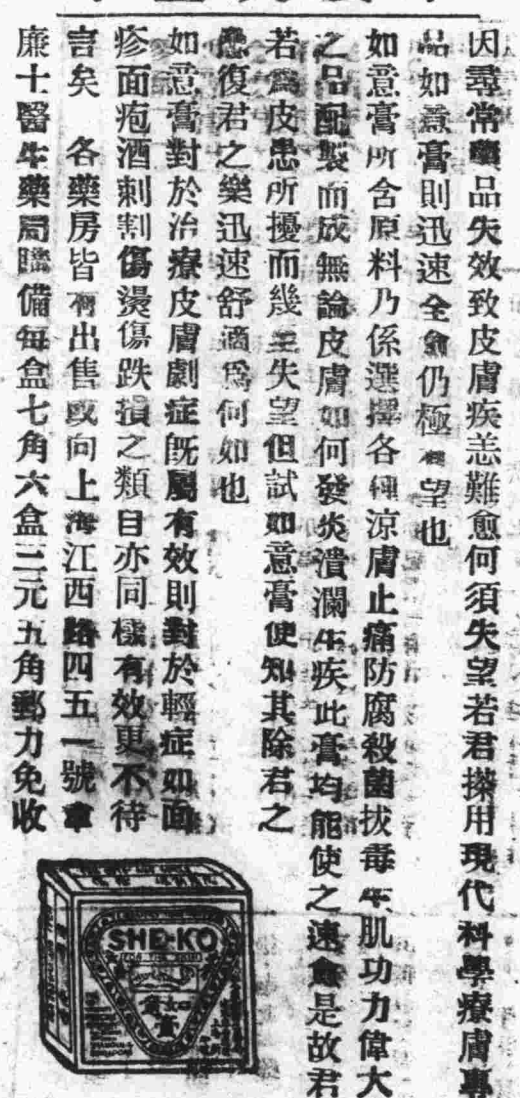 因尋常藥品失效致皮膚疾恙難愈何須失望若君搽用現代科學療膚專
品如意膏則迅速全愈仍極有望也
如意膏所含原料乃係選擇各種涼膚止痛防腐殺菌拔毒生肌功力偉大
之品配製而成無論皮膚如何發炎潰瀾生疾此膏均能使之速愈是故君
若為皮患所擾而幾至失望但試如意膏便知其除君之
患復君之樂迅速舒適為何如也
如意膏對於治療皮膚劇症既屬有效則對於輕症如面
疹面疱酒刺割傷燙傷跌損之類自亦同樣有效更不待
言矣　各藥房皆有出售或向上海江西路四五一號韋
廉士醫生藥局購備每盒七角六盒三元五角郵力免收
SHE-KO
FOR THE SKIN
如意膏